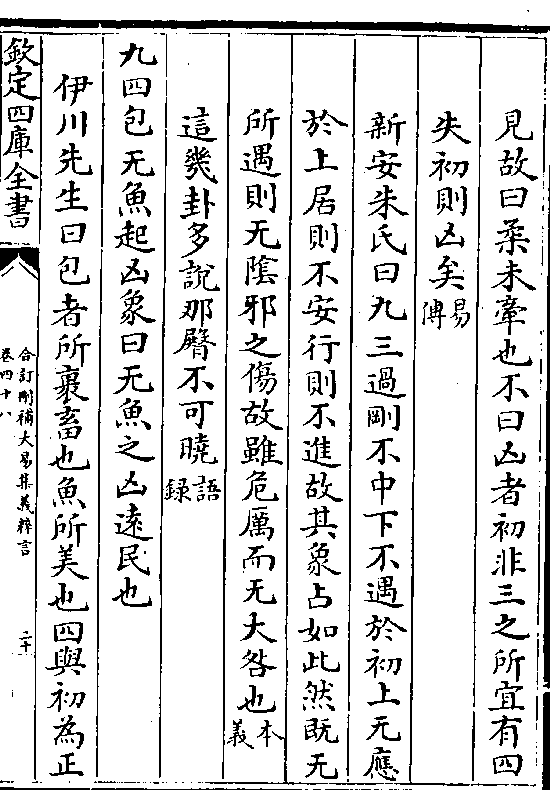 見故曰柔未牽也不曰凶者初非三之所宜有四
失初則凶矣易傳
新安朱氏曰九三過剛不中下不遇於初上无應
於上居則不安行則不進故其象占如此然既无
所遇則无陰邪之傷故雖危厲而无大咎也本義
這幾卦多說那臀不可曉語錄
九四包无魚起凶象曰无魚之凶遠民也
伊川先生曰包者所裹畜也魚所美也四與初為正
欽定四庫全書
合訂刪補大易集義粹言
卷四十八
二十